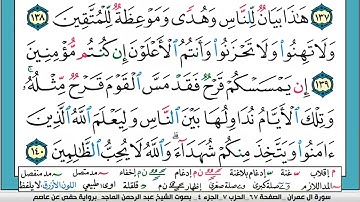 ١٣٧ هَٰذَا بَيَانٌ لِّلنَّاسِ وَهُدًى وَمَوْعِظَةٌ لِّلْمُتَّقِينَ ١٣٨
وَلَا تَهِنُوا۟ وَلَا تَحْزَنُوا۟ وَأَنتُمُ ٱلْأَعْلَوْنَ إِن كُنتُم مُّؤْمِنِينَ
١٣٩ إِن يَمْسَسْكُمْ قَرْحٌ فَقَدْ مَسَّ ٱلْقَوْمَ قَرْحٌ مِّثْلُهُۥ ۚ
وَتِلْكَ ٱلْأَيَّامُ نُدَاوِلُهَا بَيْنَ ٱلنَّاسِ وَلِيَعْلَمَ ٱللَّهُ ٱلَّذِينَ
ءَامَنُوا۟ وَيَتَّخِذَ مِنكُمْ شُهَدَآءَ ۗ وَٱللَّهُ لَا يُحِبُّ ٱلظَّٰلِمِينَ ١٤٠
سورة آل عمران الصفحة ٦٧ الجزء ٤ بصوت الشيخ عبد الرحمن الماجد برواية حفص عن عاصم